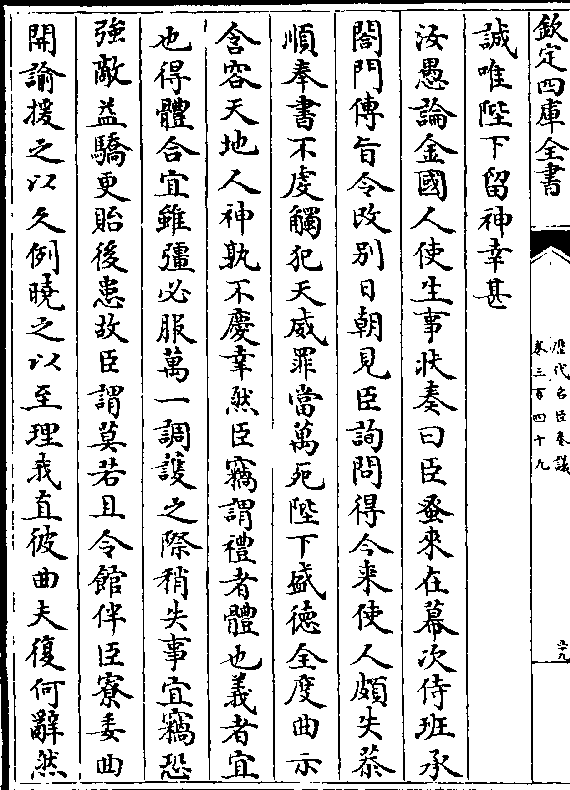 欽定四庫全書
歷代名臣奏議
卷三百四十九
五十九
誠唯陛下留神幸甚
汝愚論金國人使生事狀奏曰臣蚤來在幕次侍班承
閤門傳旨令改別日朝見臣詢問得今来使人頗失恭
順奉書不虔觸犯天威罪當萬死陛下盛徳全度曲示
含容天地人神孰不慶幸然臣竊謂禮者體也義者宜
也得體合宜雖彊必服萬一調護之際稍失事宜竊恐
強敵益驕更貽後患故臣謂莫若且令館伴臣寮委曲
開諭援之以久例曉之以至理我直彼曲夫復何辭然